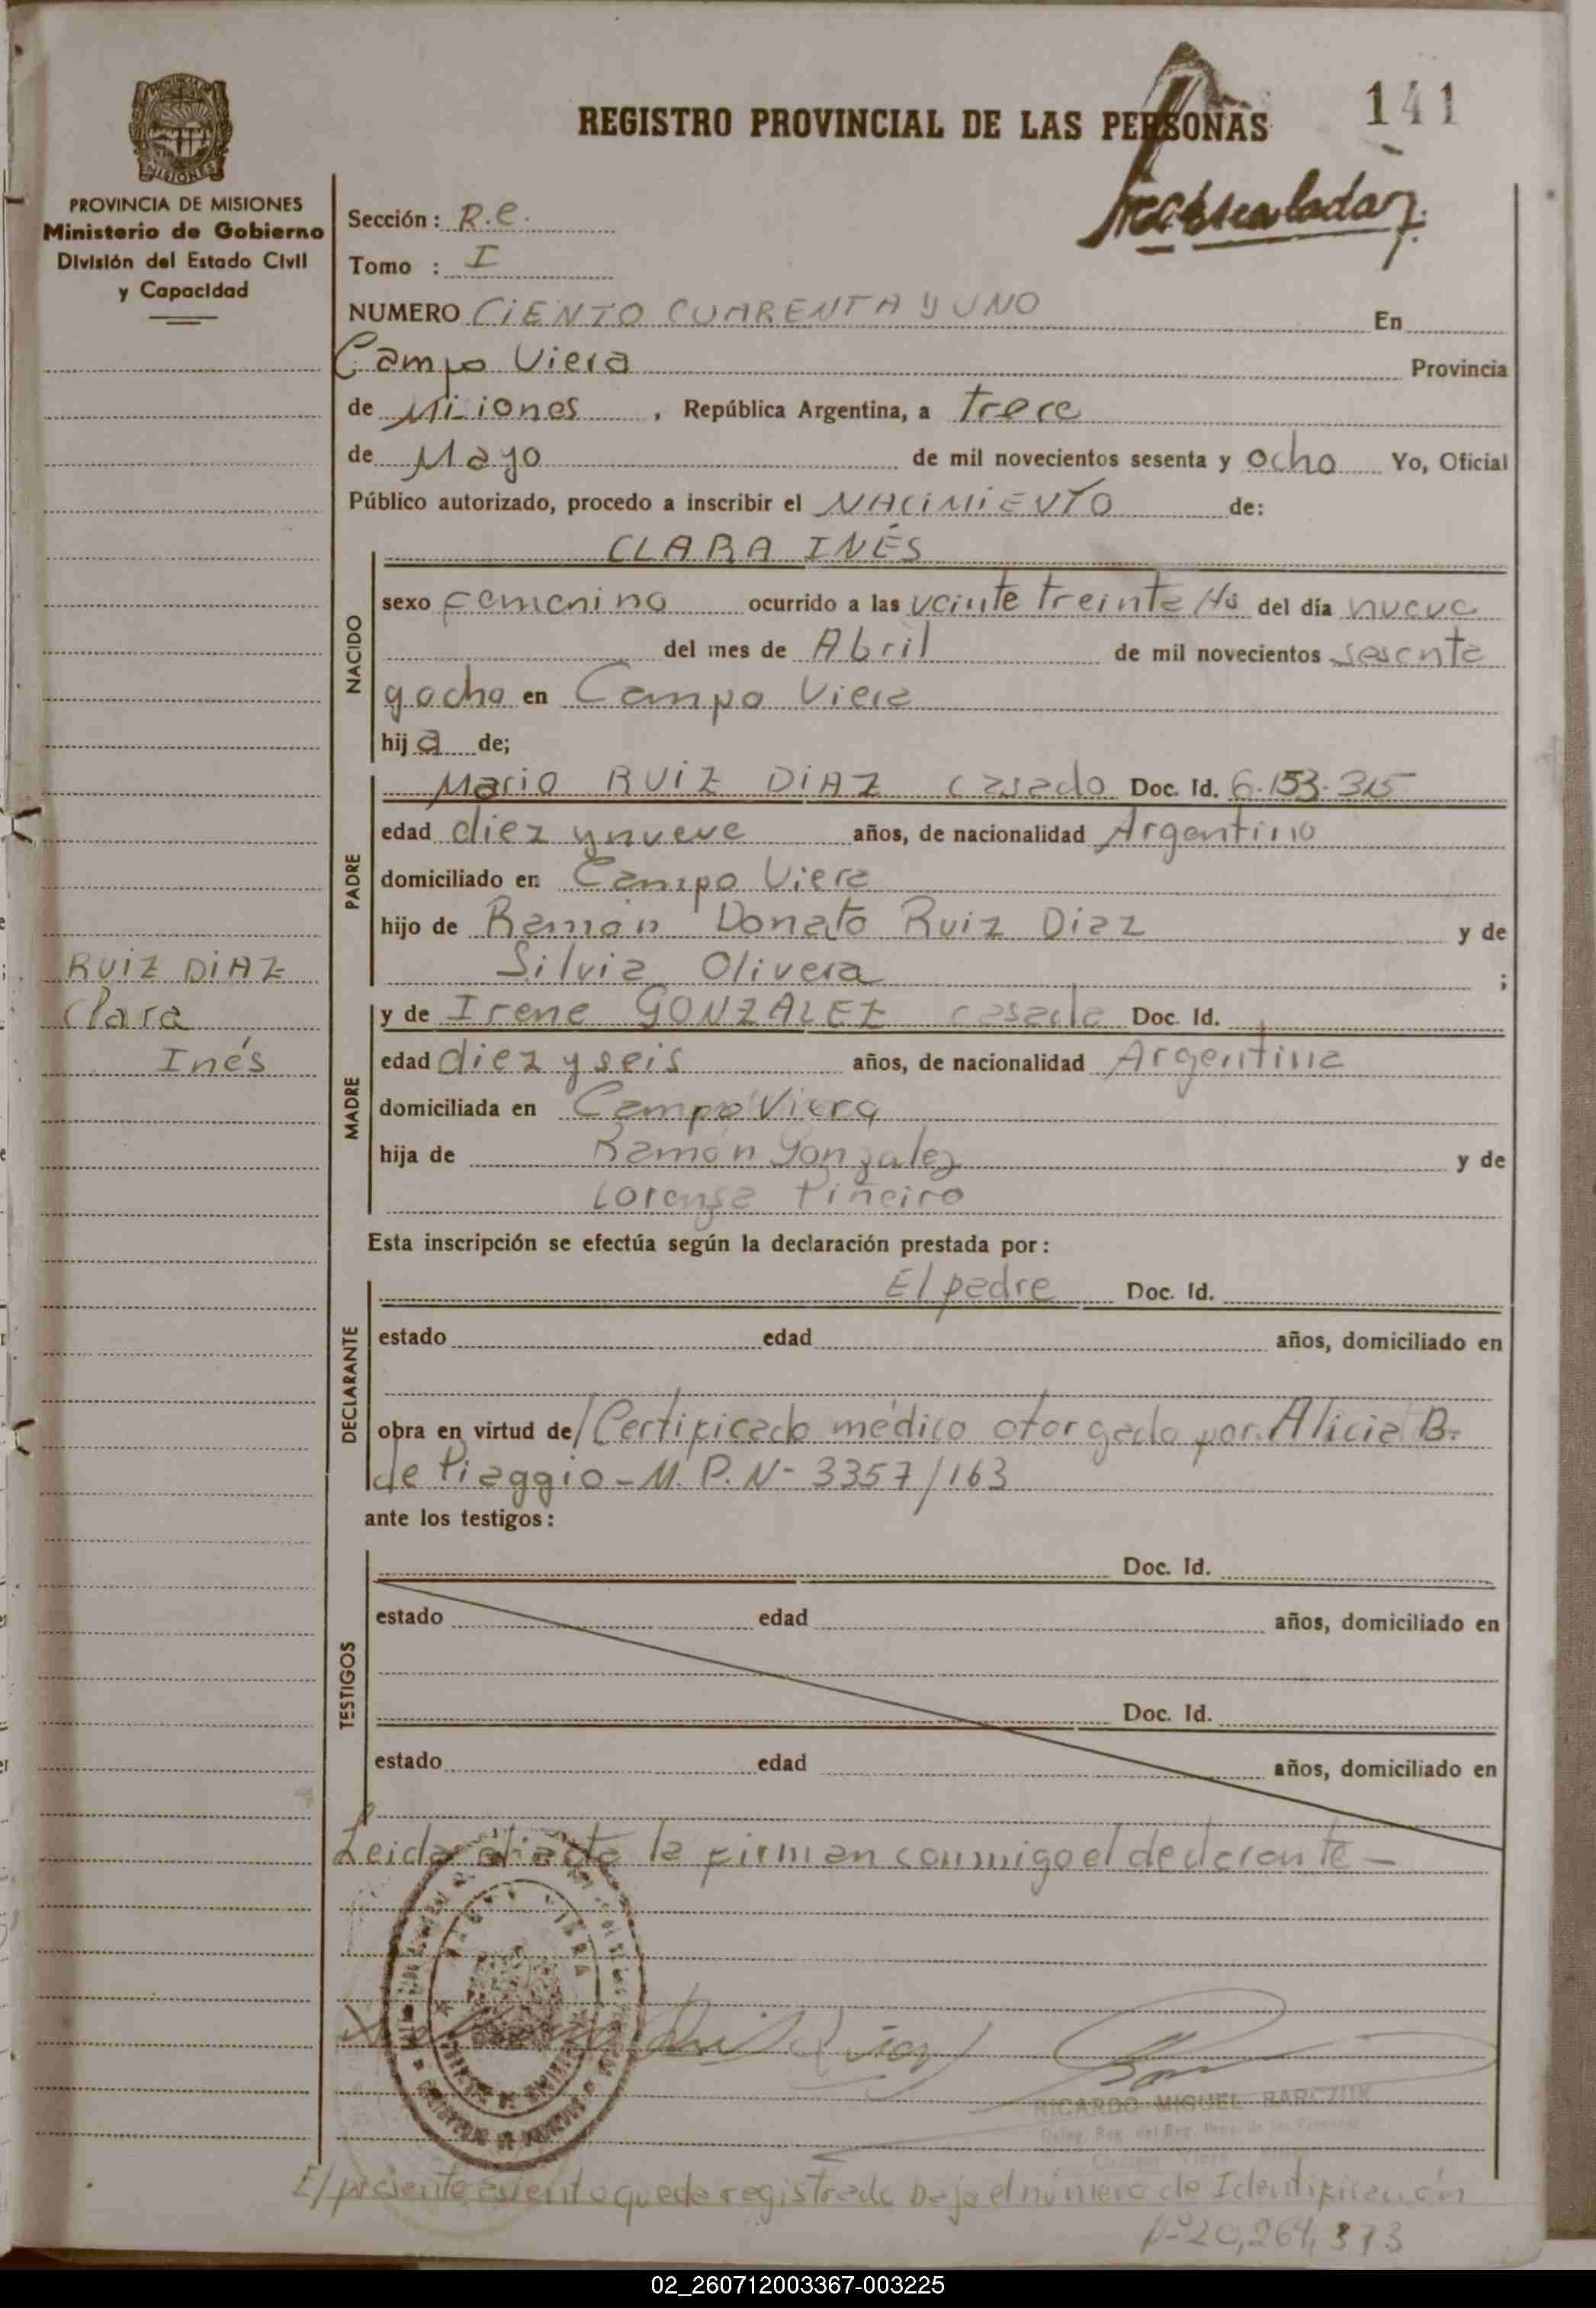 REGISTRO PROVINCIAL DE LAS PERSONAS
141
PROVINCIA DE MISIONES
Ministerio de Gobierno
División del Estado Civil
y Capacidad
Sección: R.C.
Tomo : I
NUMERO CIENTO CUARENTA y UNO En
Campo Viera Provincia
de Misiones, República Argentina, a trece
de Mayo de mil novecientos sesenta y ocho Yo, Oficial
Público autorizado, procedo a inscribir el NACIMIENTO de:
CLARA INÉS
NACIDO
sexo femenino ocurrido a las veinte treinta Hs del día nueve
del mes de Abril de mil novecientos sesenta
y ocho en Campo Viera
hij a de;
PADRE
Mario RUIZ DIAZ casado Doc. Id. 6.153.315
edad diez y nueve años, de nacionalidad Argentino
domiciliado en Campo Viera
hijo de Ramón Donato Ruiz Diaz y de
Silvia Olivera ;
RUIZ DIAZ
Clara
Inés
MADRE
y de Irene GONZALEZ casada Doc. Id.
edad diez y seis años, de nacionalidad Argentina
domiciliada en Campo Viera
hija de Ramón Gonzalez y de
Lorenza Piñeiro
Esta inscripción se efectúa según la declaración prestada por:
DECLARANTE
El padre Doc. Id.
estado edad años, domiciliado en
obra en virtud de/ Certificado médico otorgado por Alicia B.
de Piaggio - M. P. N- 3357/163
ante los testigos:
TESTIGOS
Doc. Id.
estado edad años, domiciliado en
Doc. Id.
estado edad años, domiciliado en
Leida el acta la firman conmigo el declarante -
RICARDO MIGUEL BARCZUK
El presente asiento queda registrado bajo el número de Identificación
Nº 20,264,373
02_260712003367-003225